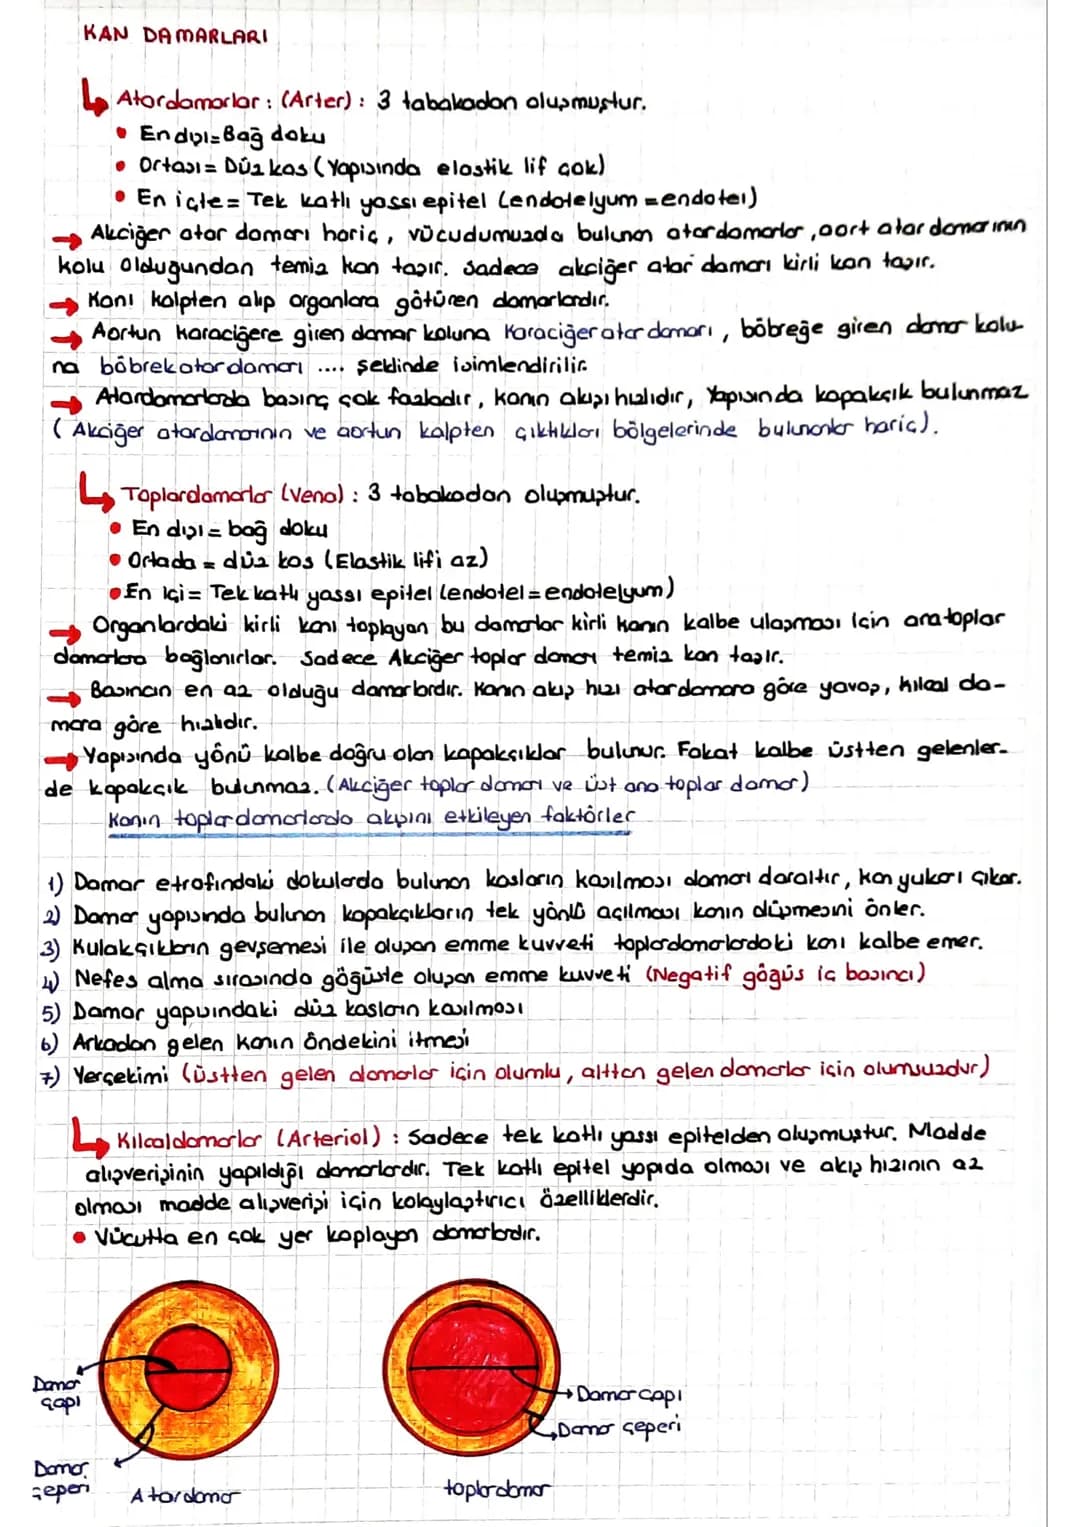 KAN DAMARLARI
Atardamarlar: (Arter): 3 tabakadan oluşmuştur.
• En dışı=Bağ doku
• Ortası= Düz kas (Yapısında elastik lif çok)
• En içte= Tek katlı yassı epitel (endotelyum =endotel)
→ Akciğer atar damarı hariç, vücudumuzda bulunan atardamarlar, aort atar damarının
kolu olduğundan temiz kan taşır. Sadece akciğer atar damarı kirli kan taşır.
→ Kanı kalpten alıp organlara götüren damarlardır.
→ Aortun karaciğere giren damar koluna Karaciğer atar damarı, böbreğe giren damar kolu-
na böbrek atar damarı .... şeklinde isimlendirilir.
→ Atardamarlarda basınç çok fazladır, kanın akışı hızlıdır, Yapısında kapakçık bulunmaz
(Akciğer atardamarının ve aortun kalpten çıktıkları bölgelerinde bulunanlar hariç).
Toplardamarlar (Vena) : 3 tabakadan oluşmuştur.
• En dışı= bağ doku
• Ortada = düz kas (Elastik lifi az)
• En içi= Tek katlı yassı epitel (endotel=endotelyum)
→ Organlardaki kirli kanı toplayan bu damarlar kirli kanın kalbe ulaşması için ana toplar
damarlara bağlanırlar. Sadece Akciğer toplar damarı temiz kan taşır.
→ Basıncın en az olduğu damarlardır. Kanın akış hızı atardamara göre yavaş, kılcal da-
mara göre hızlıdır.
→ Yapısında yönü kalbe doğru olan kapakçıklar bulunur. Fakat kalbe üstten gelenler-
de kapakçık bulunmaz. (Akciğer toplar damarı ve üst ana toplar damar)
Kanın toplardamarlarda akışını etkileyen faktörler
1) Damar etrafındaki dokularda bulunan kasların kasılması damarı daraltır, kan yukarı çıkar.
2) Damar yapısında bulunan kapakçıkların tek yönlü açılması kanın düşmesini önler.
3) Kulakçıkların gevşemesi ile oluşan emme kuvveti toplardamarlardaki kanı kalbe emer.
4) Nefes alma sırasında göğüste oluşan emme kuvveti (Negatif göğüs iç basıncı)
5) Damar yapısındaki düz kasların kasılması
6) Arkadan gelen kanın öndekini itmesi
7) Yerçekimi (üstten gelen damarlar için olumlu, alttan gelen damarlar için olumsuzdur)
Kılcaldamarlar (Arteriol) : Sadece tek katlı yassı epitelden oluşmuştur. Madde
alışverişinin yapıldığı damarlardır. Tek katlı epitel yapıda olması ve akış hızının az
olması madde alışverişi için kolaylaştırıcı özelliklerdir.
• Vücutta en çok yer kaplayan damarlardır.
Damar
çapı
Damar
çeperi
Atardamar
Damar çapı
Damar çeperi
toplardamar